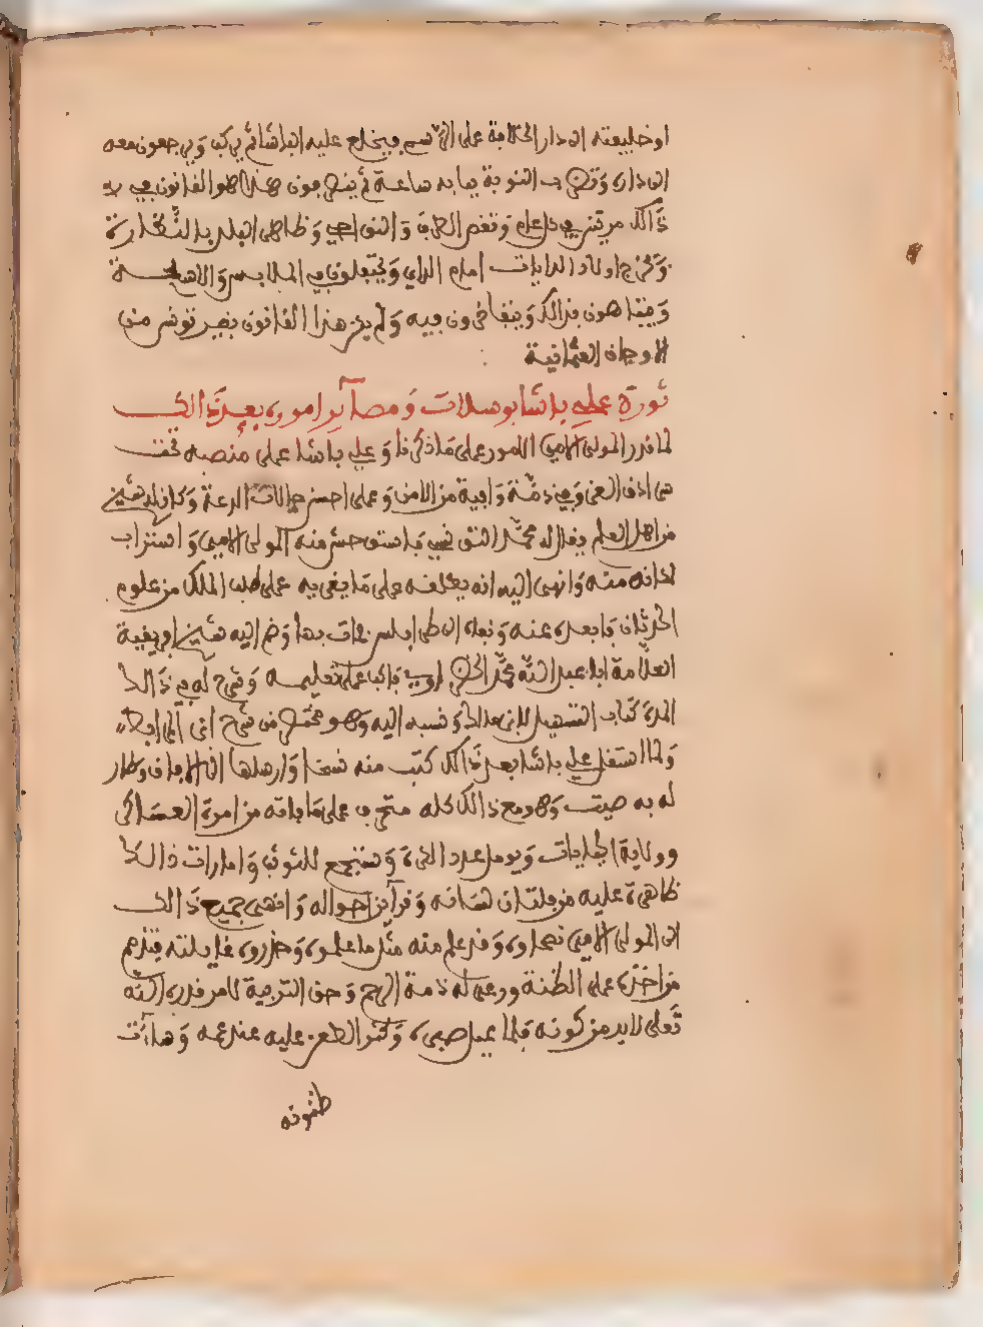 او خليفته الى دار الخلافة على الرسم فيخلع عليه الباشا ثم يركب ويرجعون معه
الى داره وتضرب النوبة ببابه ساعة ثم ينصرفون هذا هو القانون في
ذالك مرتين في كل عام وتغص الطرق والنواحي وظاهر البلد بالنظارة
وتخرج اولاد الرايات امام الراي ويحتفلون في الملابس والاسلحة
ويتباهون بذالك ويتفاخرون فيه ولم يزل هذا القانون بغير تونس من
الاوجاق العثمانية
ثورة علي باشا بوسلات ومصاير اموره بعد ذالك
لما قرر المولى الامير الامور على ما ذكرنا وعلي باشا على منصبه تحت
من اذن العز وفي ذمة وافية من الامن وعلى احسن حالات الدعة وكان له شيخ
من اهل العلم يقال له محمد فاستوحش منه المولى الامير واستراب
لمكانه منه وانهى اليه انه يطلعه على ما يغريه على طلب الملك من علوم
الحدثان فابعده عنه ونفاه الى طرابلس فمات بها وضم اليه شيخ افريقية
العلامة ابا عبد الله محمد الخضراوي فاكبا على تعليمه وشرح له في ذالك
المدة كتاب التسهيل لابن مالك ونسبه اليه وهو مختصر من شرح
ولما استقل علي باشا بعد ذالك كتب منه نسخا وارسلها الى الافاق وطار
له به صيت وهو مع ذالك كله متحرق على ما فاته من امرة العساكر
وولاية الجبايات ويومل عدد الكرة ويستجمع للوثوب وامارات ذالك
ظاهرة عليه من فلتات لسانه وقراين احواله وانتهى جميع ذالك
الى المولى الامير نصحاوه وقد علم منه مثل ما علموه وحذروه غايلته فتذمم
من اخذه على الظنة ورعى له ذمة الرحم وحق التربية لامر قدره الله
تعلى لا بد من كونه فلما عيل صبره وكثر الطعن عليه عند عمه وساءت
ظنونه